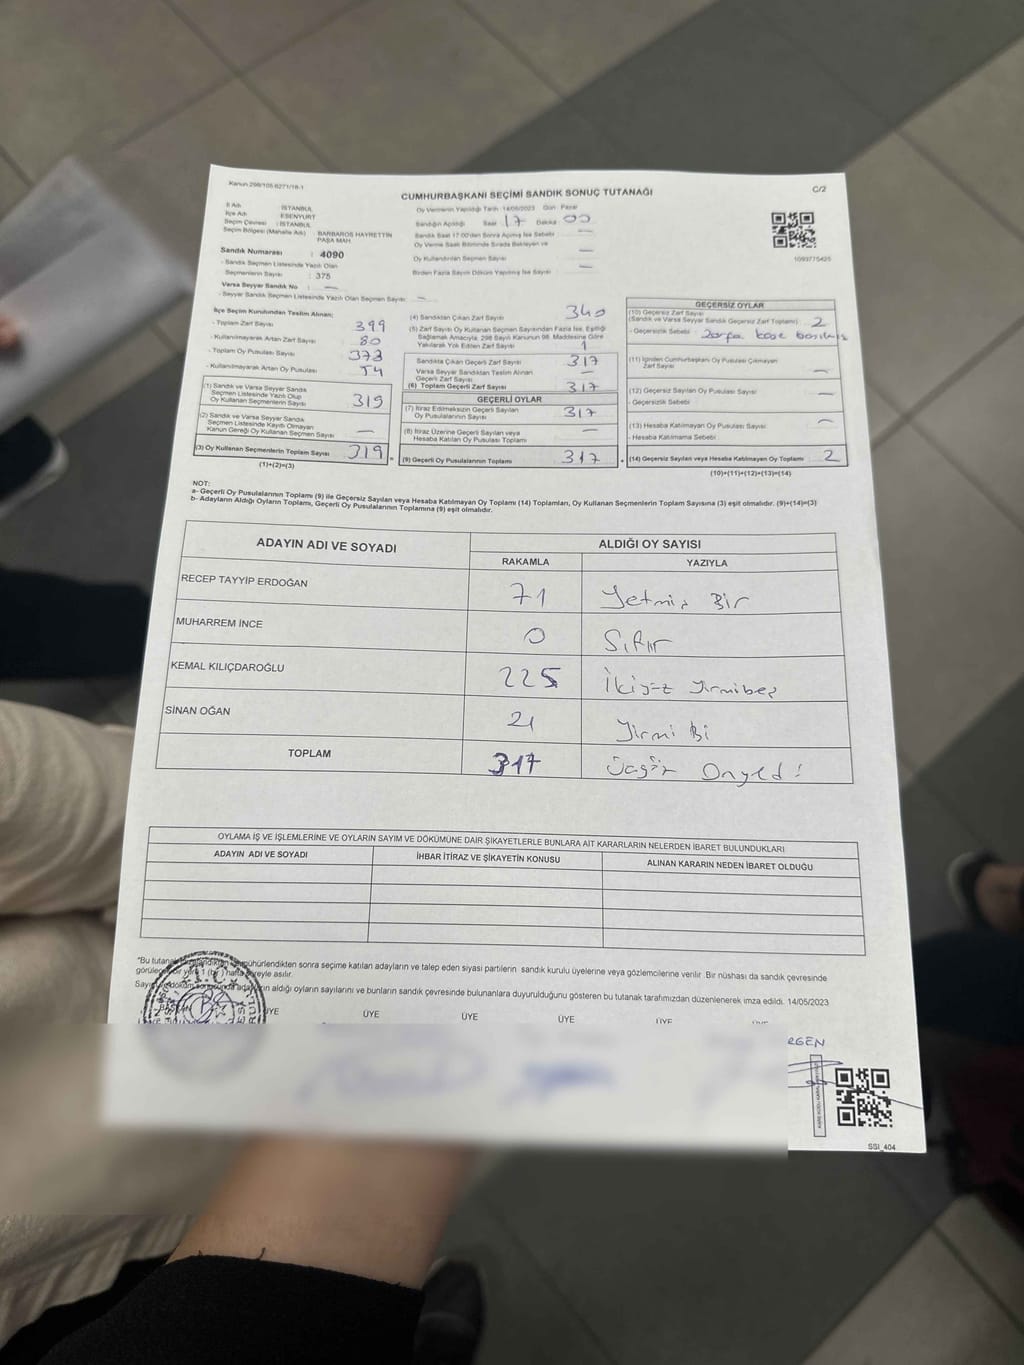 Kanun:298/105 6271/18-1
C/2
CUMHURBAŞKANI SEÇİMİ SANDIK SONUÇ TUTANAĞI
İl Adı : İSTANBUL
İlçe Adı : ESENYURT
Seçim Çevresi : İSTANBUL
Seçim Bölgesi (Mahalle Adı) : BARBAROS HAYRETTİN PAŞA MAH.
Sandık Numarası : 4090
- Sandık Seçmen Listesinde Yazılı Olan
Seçmenlerin Sayısı : 375
Varsa Seyyar Sandık No : —
- Seyyar Sandık Seçmen Listesinde Yazılı Olan Seçmen Sayısı : —
Oy Vermenin Yapıldığı Tarih :14/05/2023 Gün : Pazar
Sandığın Açıldığı Saat : 17 Dakika : 00
Sandık Saat 17:00'den Sonra Açılmış İse Sebebi : —
Oy Verme Saati Bitiminde Sırada Bekleyen ve
Oy Kullandırılan Seçmen Sayısı : —
Birden Fazla Sayım Döküm Yapılmış İse Sayısı : —
1093775425
İlçe Seçim Kurulundan Teslim Alınan;
- Toplam Zarf Sayısı : 399
- Kullanılmayarak Artan Zarf Sayısı : 80
- Toplam Oy Pusulası Sayısı : 373
- Kullanılmayarak Artan Oy Pusulası : 54
(1) Sandık ve Varsa Seyyar Sandık
Seçmen Listesinde Yazılı Olup
Oy Kullanan Seçmenlerin Sayısı : 319
(2) Sandık ve Varsa Seyyar Sandık
Seçmen Listesinde Kayıtlı Olmayan
Kanun Gereği Oy Kullanan Seçmen Sayısı : —
(3) Oy Kullanan Seçmenlerin Toplam Sayısı : 319
(1)+(2)=(3)
(4) Sandıktan Çıkan Zarf Sayısı : 340
(5) Zarf Sayısı Oy Kullanan Seçmen Sayısından Fazla İse, Eşitliği
Sağlamak Amacıyla, 298 Sayılı Kanunun 98. Maddesine Göre
Yakılarak Yok Edilen Zarf Sayısı : 1
Sandıkta Çıkan Geçerli Zarf Sayısı : 317
Varsa Seyyar Sandıktan Teslim Alınan
Geçerli Zarf Sayısı : —
(6) Toplam Geçerli Zarf Sayısı : 317
GEÇERLİ OYLAR
(7) İtiraz Edilmeksizin Geçerli Sayılan
Oy Pusulalarının Sayısı : 317
(8) İtiraz Üzerine Geçerli Sayılan veya
Hesaba Katılan Oy Pusulası Toplamı : —
(9) Geçerli Oy Pusulalarının Toplamı : 317
GEÇERSİZ OYLAR
(10) Geçersiz Zarf Sayısı
(Sandık ve Varsa Seyyar Sandık Geçersiz Zarf Toplamı) : 2
- Geçersizlik Sebebi : Zarfa kaşe basılmış
(11) İçinden Cumhurbaşkanı Oy Pusulası Çıkmayan
Zarf Sayısı : —
(12) Geçersiz Sayılan Oy Pusulası Sayısı : —
- Geçersizlik Sebebi :
(13) Hesaba Katılmayan Oy Pusulası Sayısı : —
- Hesaba Katılmama Sebebi :
(14) Geçersiz Sayılan veya Hesaba Katılmayan Oy Toplamı : 2
(10)+(11)+(12)+(13)=(14)
NOT:
a- Geçerli Oy Pusulalarının Toplamı (9) ile Geçersiz Sayılan veya Hesaba Katılmayan Oy Toplamı (14) Toplamları, Oy Kullanan Seçmenlerin Toplam Sayısına (3) eşit olmalıdır. (9)+(14)=(3)
b- Adayların Aldığı Oyların Toplamı, Geçerli Oy Pusulalarının Toplamına (9) eşit olmalıdır.
ADAYIN ADI VE SOYADI ALDIĞI OY SAYISI
RAKAMLA YAZIYLA
RECEP TAYYİP ERDOĞAN 71 Yetmiş Bir
MUHARREM İNCE 0 Sıfır
KEMAL KILIÇDAROĞLU 225 İkiyüz Yirmibeş
SİNAN OĞAN 21 Yirmi Bi
TOPLAM 317 Üçyüz Onyedi
OYLAMA İŞ VE İŞLEMLERİNE VE OYLARIN SAYIM VE DÖKÜMÜNE DAİR ŞİKAYETLERLE BUNLARA AİT KARARLARIN NELERDEN İBARET BULUNDUKLARI
ADAYIN ADI VE SOYADI İHBAR İTİRAZ VE ŞİKAYETİN KONUSU ALINAN KARARIN NEDEN İBARET OLDUĞU
"Bu tutanak sonra seçime katılan adayların ve talep eden siyasi partilerin sandık kurulu üyelerine veya gözlemcilerine verilir .Bir nüshası da sandık çevresinde
yere 1 (bir) hafta süreyle asılır.
aldığı oyların sayılarını ve bunların sandık çevresinde bulunanlara duyurulduğunu gösteren bu tutanak tarafımızdan düzenlenerek imza edildi. 14/05/2023
BAŞKAN ÜYE ÜYE ÜYE ÜYE ÜYE
RGEN
SSI_404